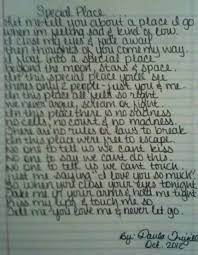 Special Place...
Let me tell you about a place I go
when im feeling sad & kind of low.
I close my eyes & fade away
then thoughts of you come my way.
I slept into a special place
behind the moon, stars & space.
In this special place you'll see
theres only 2 people - just you & me.
In this place all feels so right
we never argue, scream or fight.
In this place there is no sadness
no cells, no cops & no madness.
There are no rules or laws to break
In this place were free to escape.
No one to tell us we cant kiss
no one to say we cant do this.
no one to tell us we cant touch
me saying "I love you so much"
So when you close your eyes tonight
Take me in your arms, hold me tight
Kiss my lips & touch me so
Tell me you love me & never let go.
By: Paula
Oct. 2012